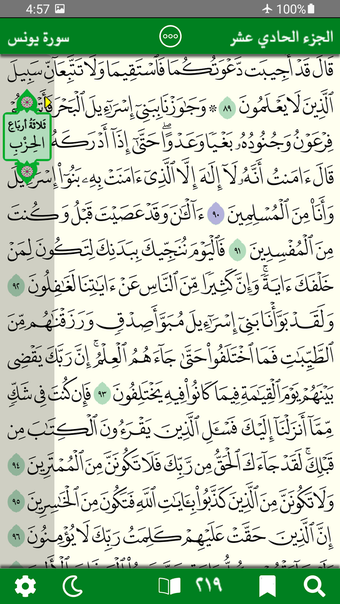 4:57 100%
الجزء الحادي عشر
سورة يونس
قَالَ قَدۡ أُجِيبَت دَّعۡوَتُكُمَا فَٱسۡتَقِيمَا وَلَا تَتَّبِعَآنِّ سَبِيلَ
ٱلَّذِينَ لَا يَعۡلَمُونَ ٨٩ ۞ وَجَٰوَزۡنَا بِبَنِيٓ إِسۡرَٰٓءِيلَ ٱلۡبَحۡرَ
ثلاثة أرباع
الحزب
فِرۡعَوۡنُ وَجُنُودُهُۥ بَغۡيٗا وَعَدۡوًاۖ حَتَّىٰٓ إِذَآ أَدۡرَكَهُ
قَالَ ءَامَنتُ أَنَّهُۥ لَآ إِلَٰهَ إِلَّا ٱلَّذِيٓ ءَامَنَتۡ بِهِۦ بَنُوٓاْ إِسۡرَٰٓءِيلَ
وَأَنَا۠ مِنَ ٱلۡمُسۡلِمِينَ ٩٠ ءَآلۡـَٰٔنَ وَقَدۡ عَصَيۡتَ قَبۡلُ وَكُنتَ
مِنَ ٱلۡمُفۡسِدِينَ ٩١ فَٱلۡيَوۡمَ نُنَجِّيكَ بِبَدَنِكَ لِتَكُونَ لِمَنۡ
خَلۡفَكَ ءَايَةٗۚ وَإِنَّ كَثِيرٗا مِّنَ ٱلنَّاسِ عَنۡ ءَايَٰتِنَا لَغَٰفِلُونَ ٩٢
وَلَقَدۡ بَوَّأۡنَا بَنِيٓ إِسۡرَٰٓءِيلَ مُبَوَّأَ صِدۡقٖ وَرَزَقۡنَٰهُم مِّنَ
ٱلطَّيِّبَٰتِ فَمَا ٱخۡتَلَفُواْ حَتَّىٰ جَآءَهُمُ ٱلۡعِلۡمُۚ إِنَّ رَبَّكَ يَقۡضِي
بَيۡنَهُمۡ يَوۡمَ ٱلۡقِيَٰمَةِ فِيمَا كَانُواْ فِيهِ يَخۡتَلِفُونَ ٩٣ فَإِن كُنتَ فِي شَكّٖ
مِّمَّآ أَنزَلۡنَآ إِلَيۡكَ فَسۡـَٔلِ ٱلَّذِينَ يَقۡرَءُونَ ٱلۡكِتَٰبَ مِن
قَبۡلِكَۚ لَقَدۡ جَآءَكَ ٱلۡحَقُّ مِن رَّبِّكَ فَلَا تَكُونَنَّ مِنَ ٱلۡمُمۡتَرِينَ ٩٤
وَلَا تَكُونَنَّ مِنَ ٱلَّذِينَ كَذَّبُواْ بِـَٔايَٰتِ ٱللَّهِ فَتَكُونَ مِنَ ٱلۡخَٰسِرِينَ ٩٥
إِنَّ ٱلَّذِينَ حَقَّتۡ عَلَيۡهِمۡ كَلِمَتُ رَبِّكَ لَا يُؤۡمِنُونَ ٩٦
٢١٩